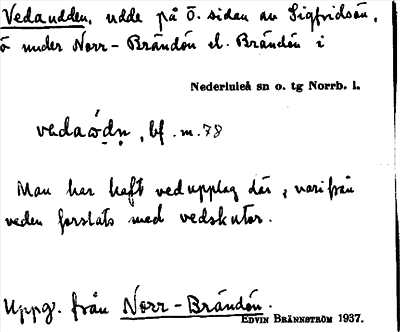 Vedaudden, udde på ö. sidan av Sigfridsön,
ö under Norr-Brändön el. Brändön i
Nederluleå sn o. tg Norrb. l.
bf. m. 78
Man har haft vedupplag där, varifrån
veden forslats med vedskutor.
Uppg. från Norr-Brändön.
Edvin Brännström 1937.